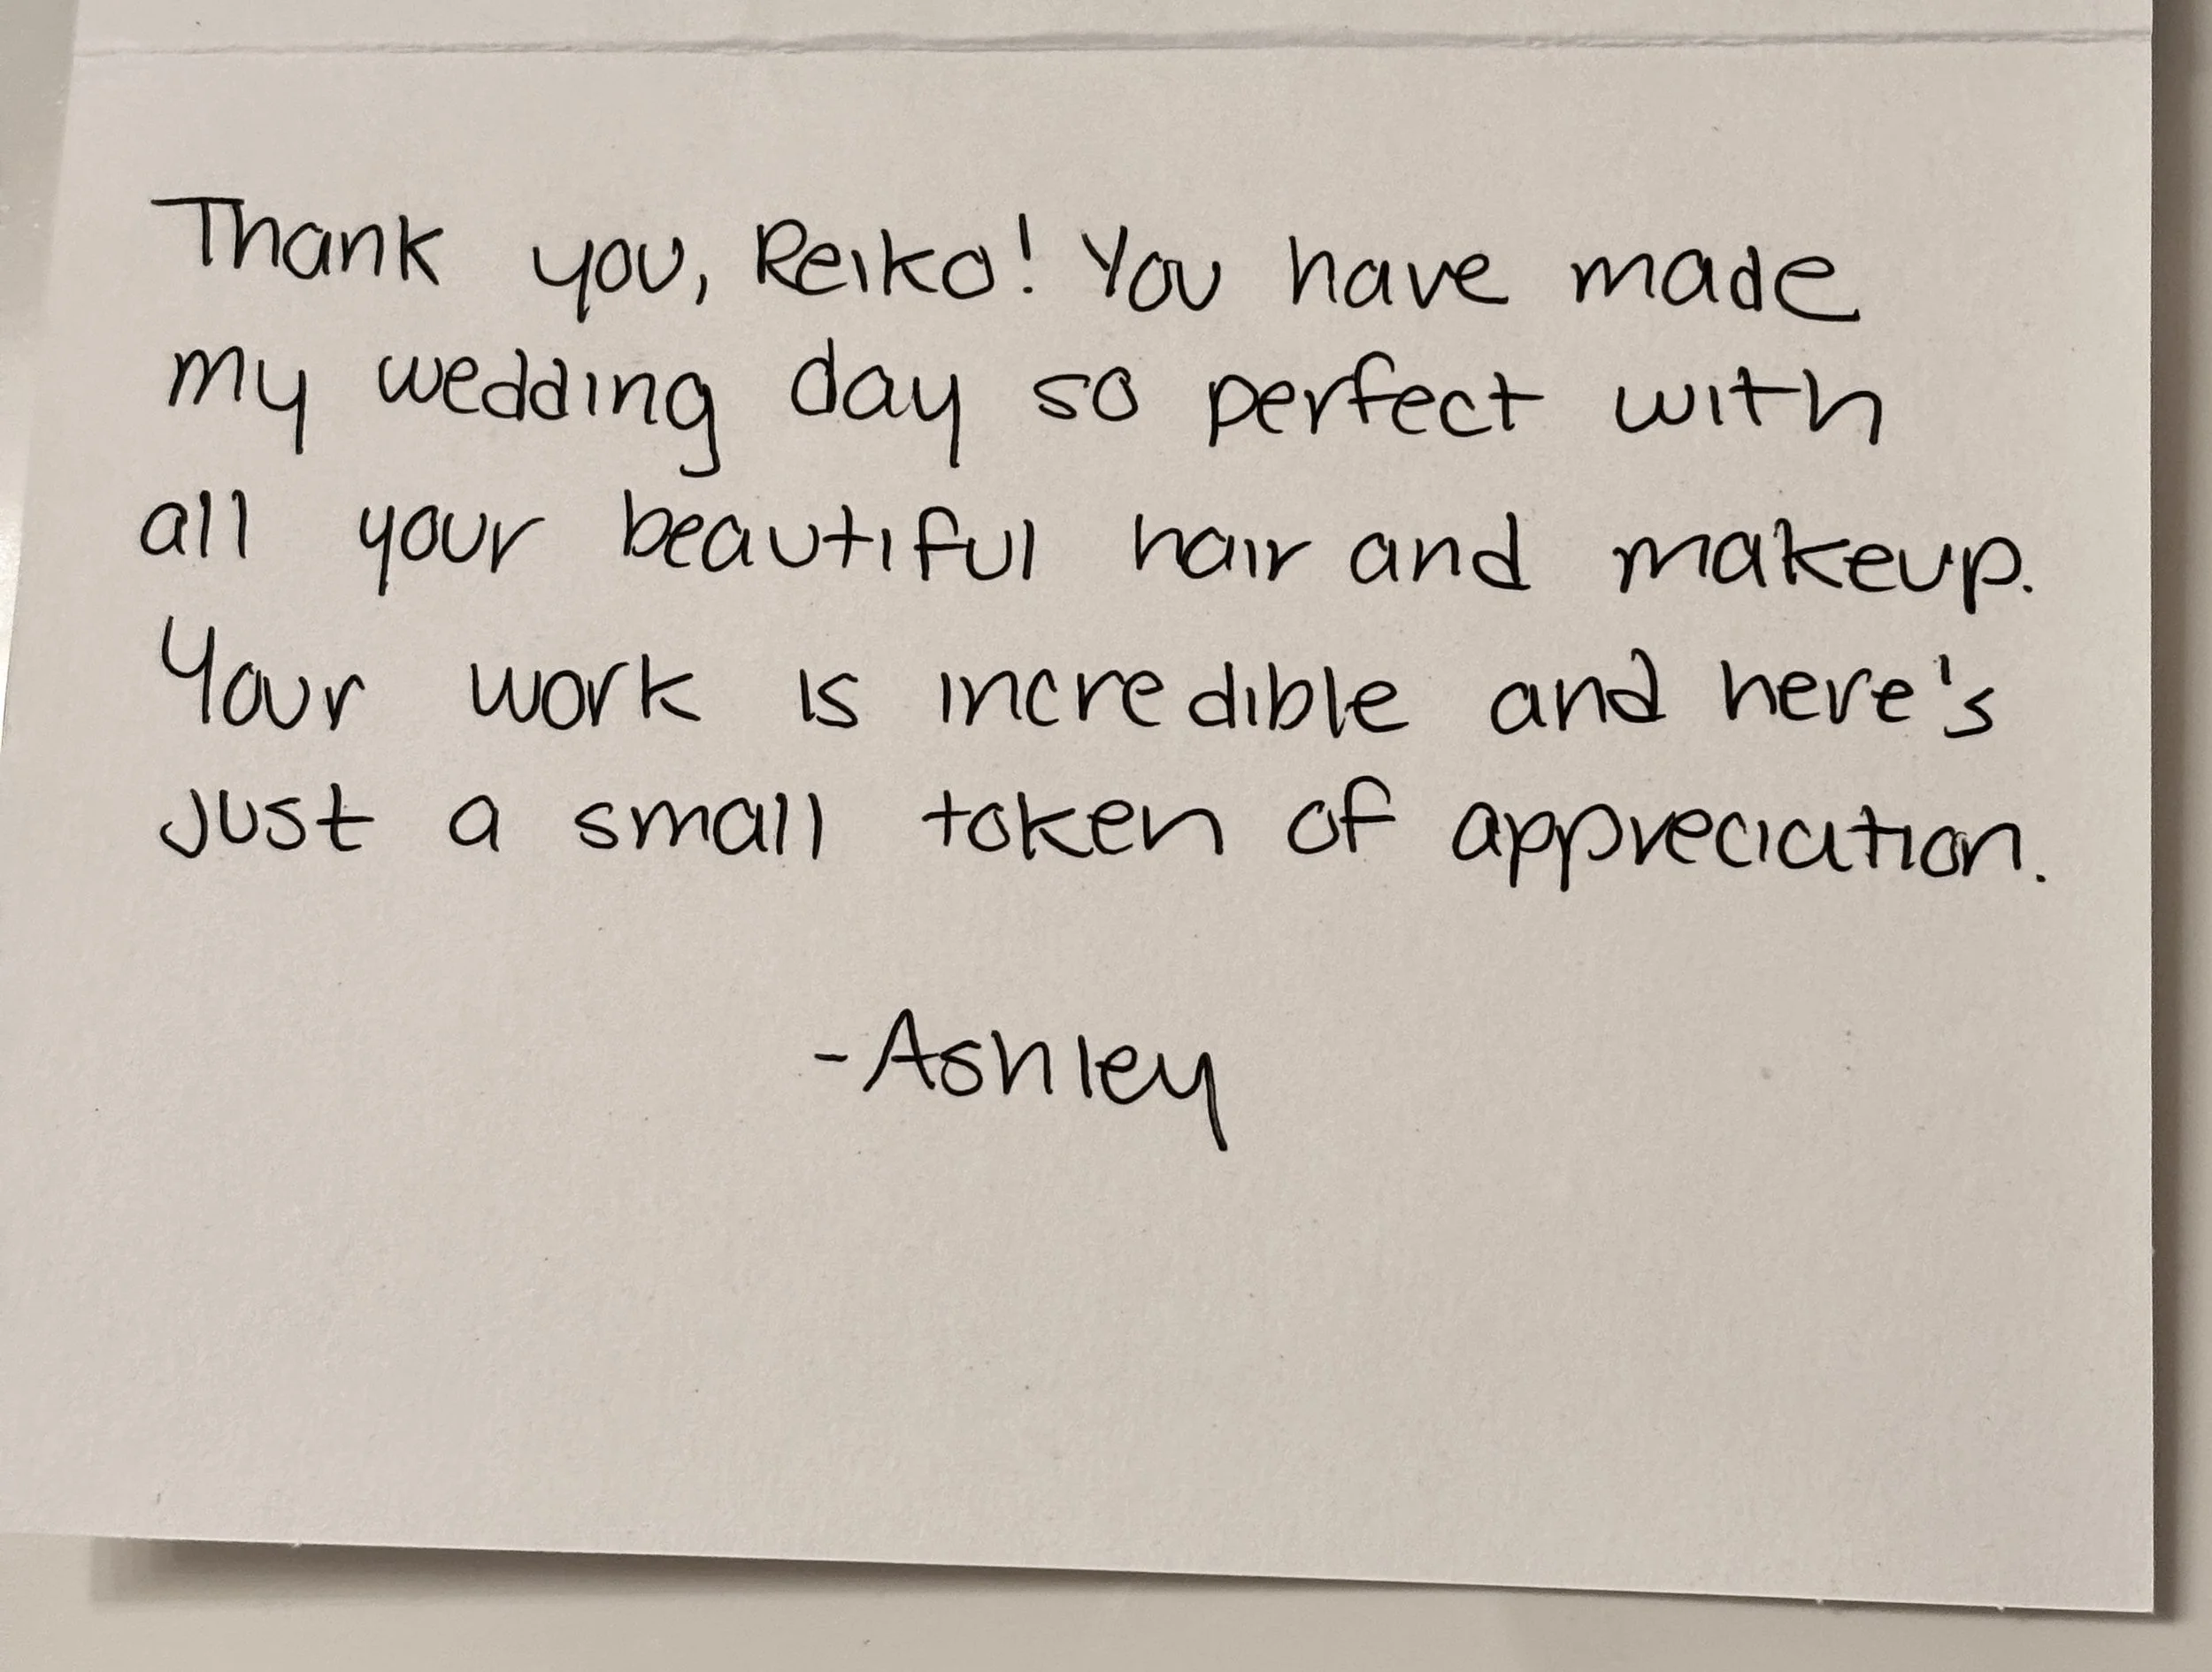 Thank you, Reiko! You have made
my wedding day so perfect with
all your beautiful hair and makeup.
Your work is incredible and here's
just a small token of appreciation.
-Ashley